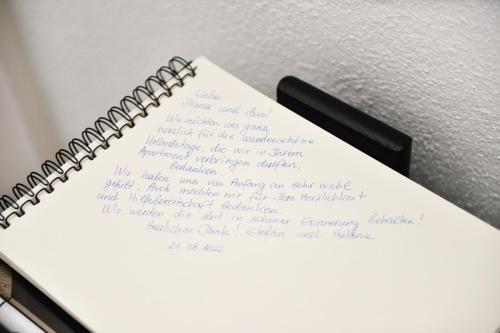 Liebe
Diana und Boro!
Wir möchten uns ganz
herzlich für die wunderschöne
Urlaubstage, die wir in Ihrem
Apartment verbringen durften,
bedanken.
Wir haben uns von Anfang an sehr wohl
gefühlt. Auch möchten wir für Ihre Herzlichkeit
und Hilfsbereitschaft bedanken.
Wir werden die Zeit in schöner Erinnerung behalten!
Herzlichen Dank! Stefan und Helena
21.08.2022